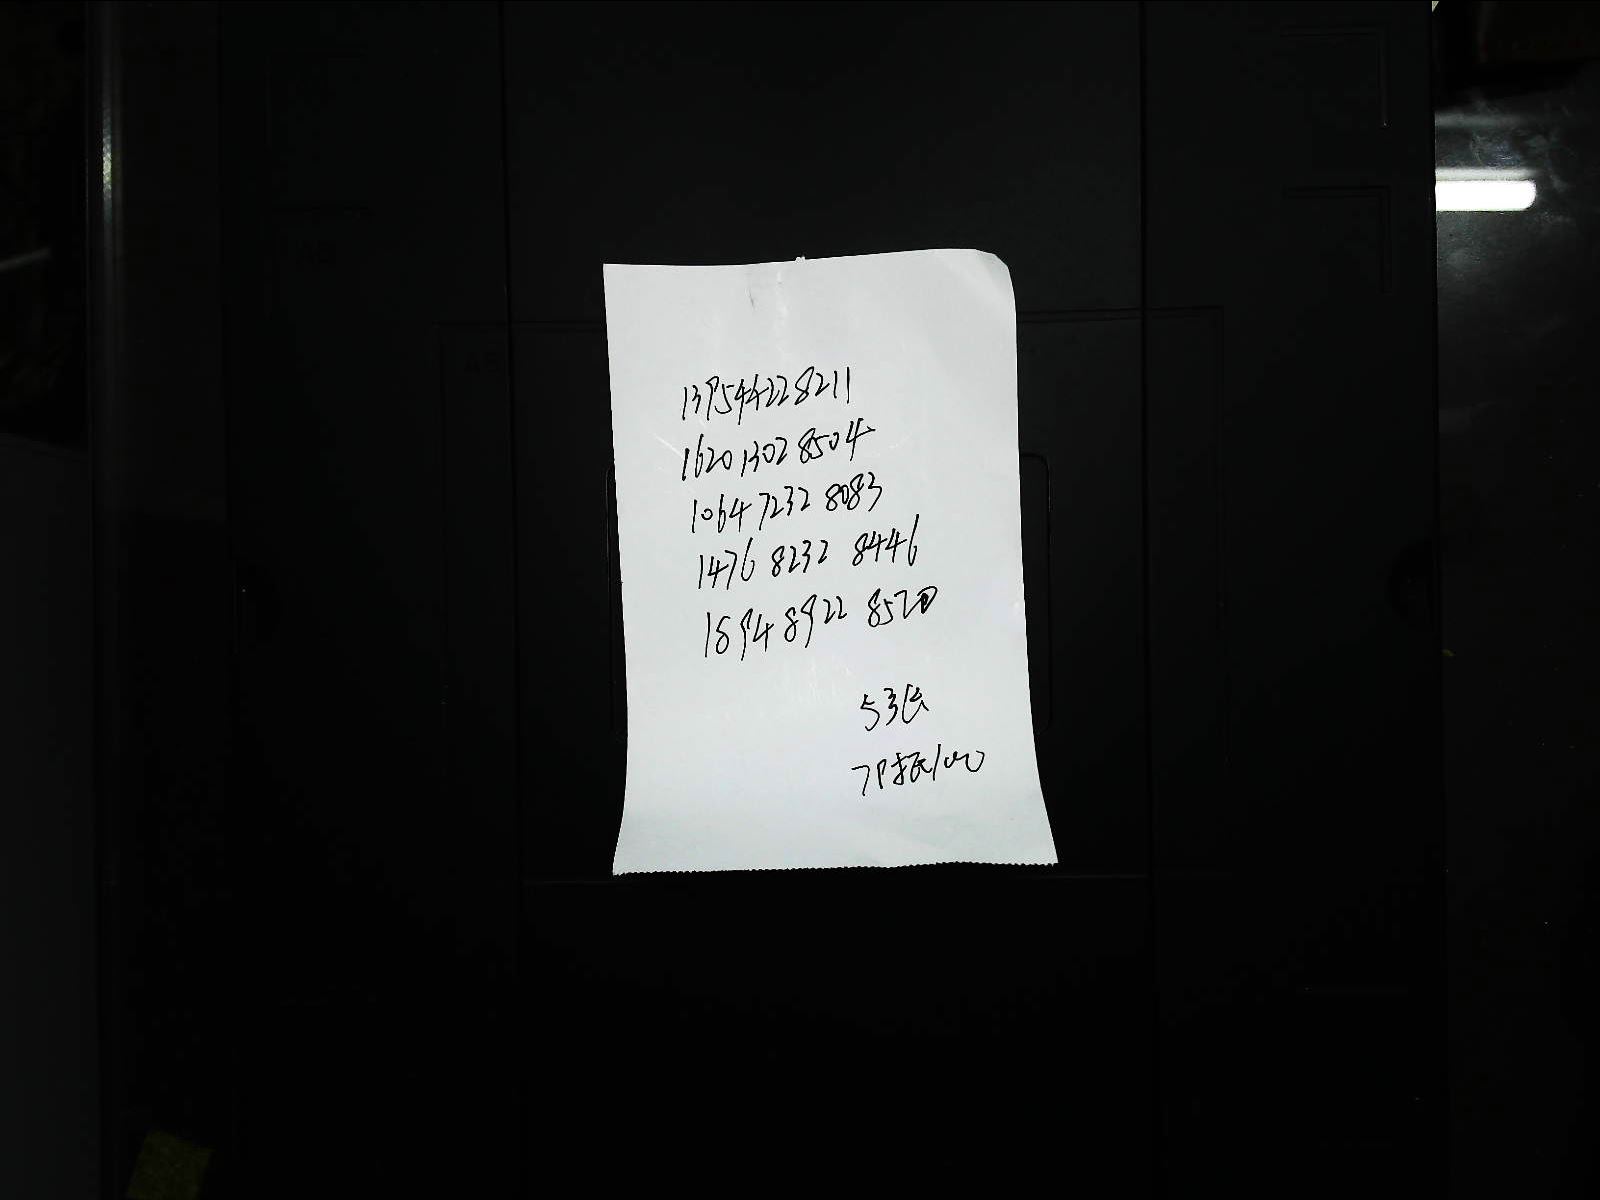 139544228211
1620 1302 8504
1064 7232 8083
1476 8232 8446
1894 8922 8570
53